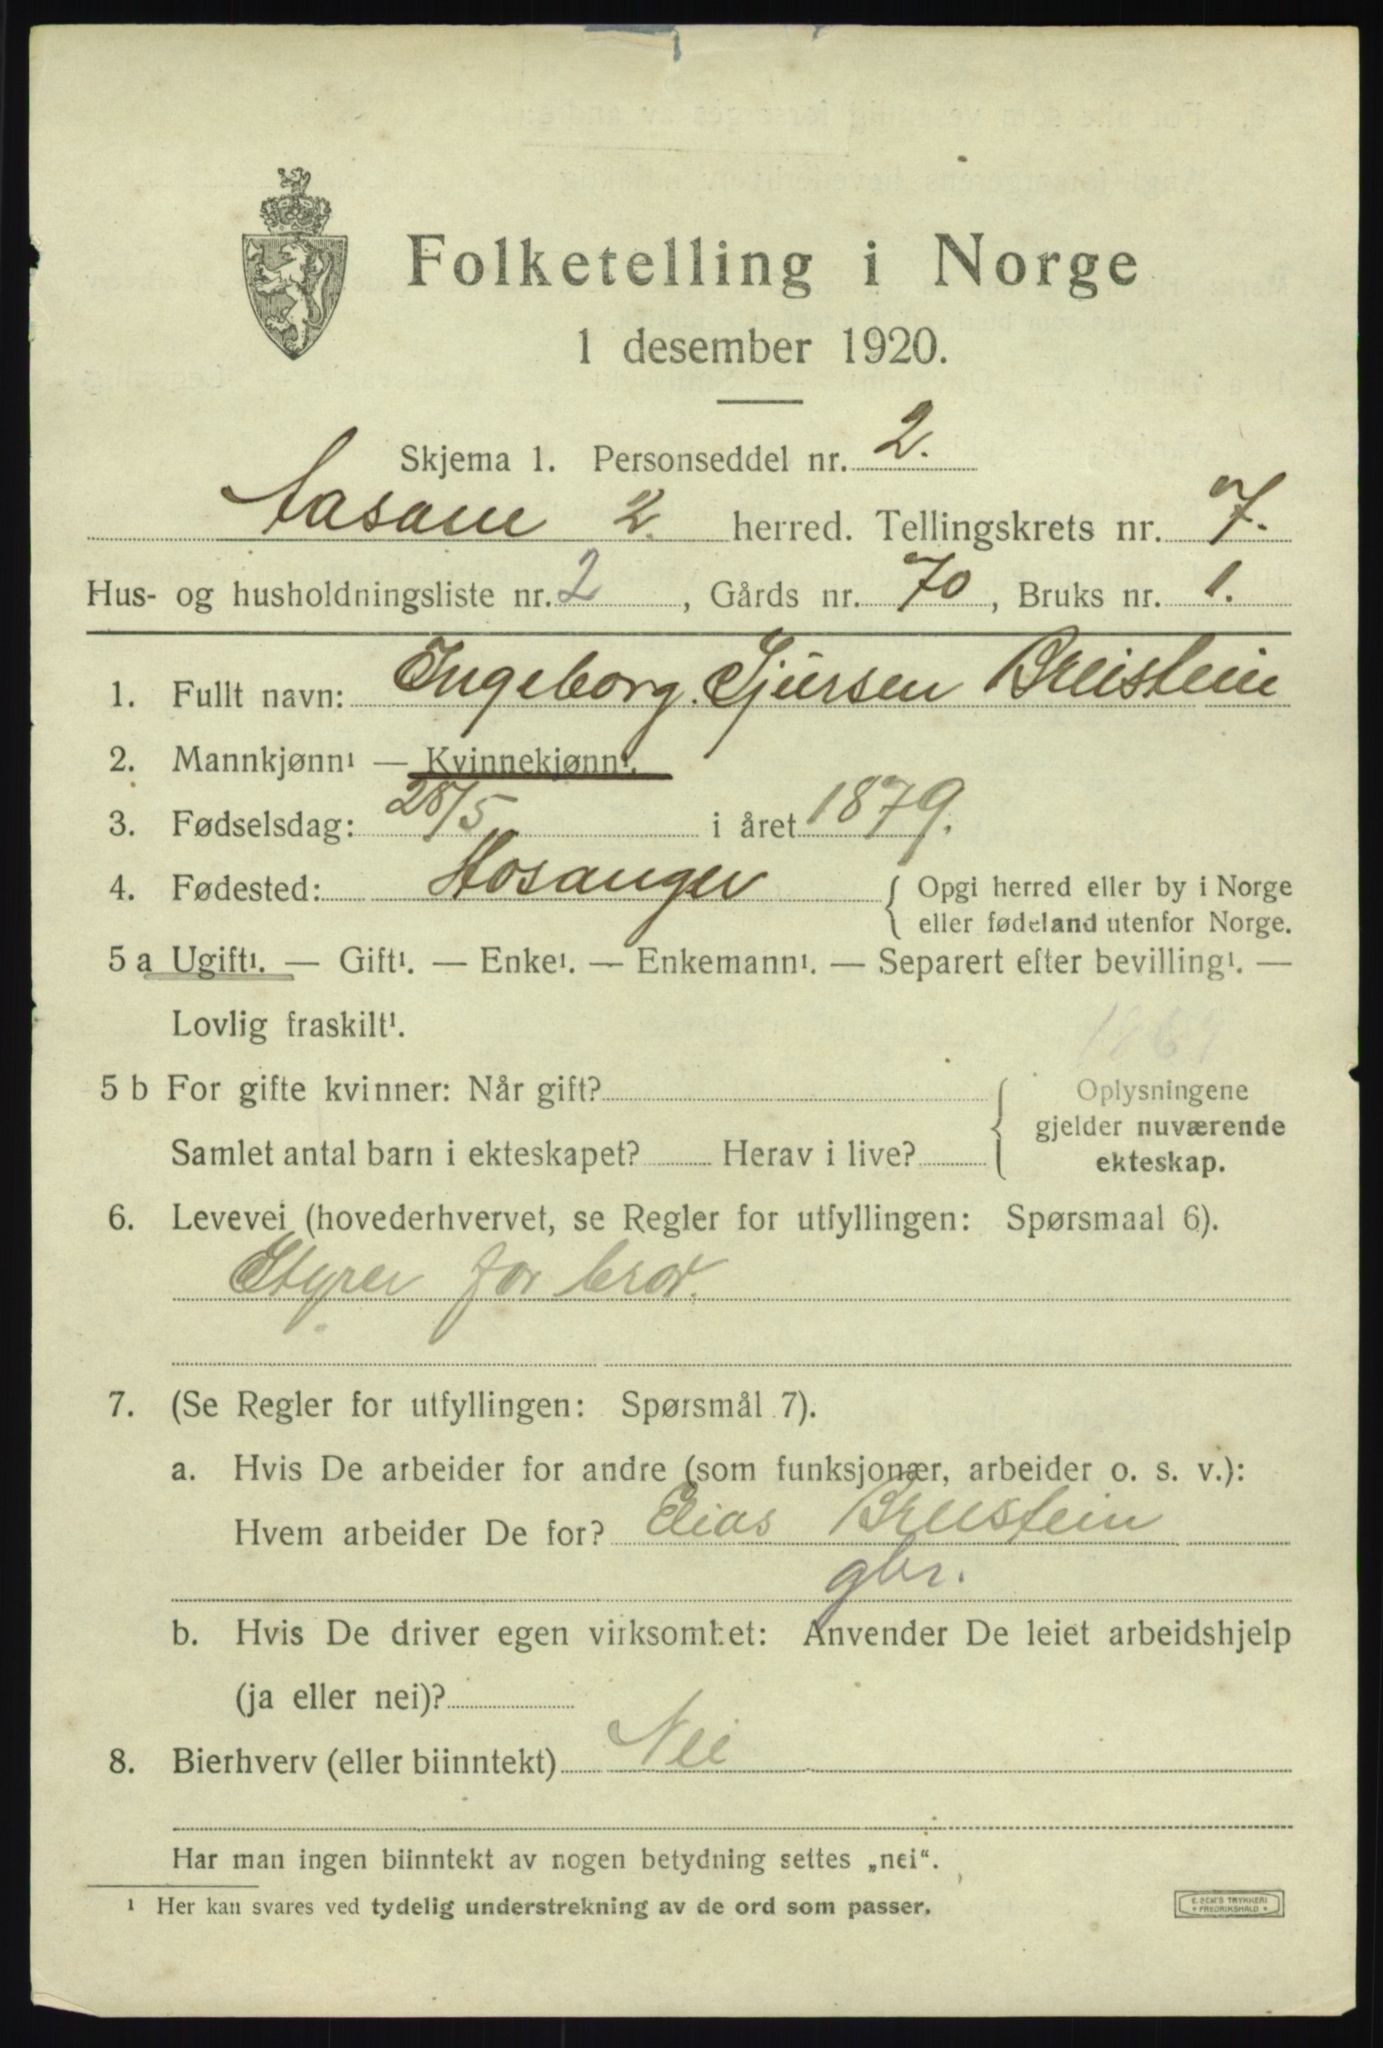 Folketelling i Norge
1 desember 1920.
Skjema 1. Personseddel nr. 2.
Aasane 2. herred. Tellingskrets nr. 7.
Hus- og husholdningsliste nr. 2, Gårds nr. 70, Bruks nr. 1.
1. Fullt navn: Ingeborg Sjursen Breistein
2. Mannkjønn¹ — Kvinnekjønn¹.
3. Fødselsdag: 28/5 i året 1879.
4. Fødested: Hosanger { Opgi herred eller by i Norge
eller fødeland utenfor Norge.
5 a Ugift¹. — Gift¹. — Enke¹. — Enkemann¹. — Separert efter bevilling¹. —
Lovlig fraskilt¹.
5 b For gifte kvinner: Når gift? { Oplysningene
gjelder nuværende
Samlet antal barn i ekteskapet? Herav i live? ekteskap.
6. Levevei (hovederhvervet, se Regler for utfyllingen: Spørsmaal 6).
Styrer for bror.
7. (Se Regler for utfyllingen: Spørsmål 7).
a. Hvis De arbeider for andre (som funksjonær, arbeider o. s. v.):
Hvem arbeider De for? Elias Breistein
gbr.
b. Hvis De driver egen virksomhet: Anvender De leiet arbeidshjelp
(ja eller nei)?
8. Bierhverv (eller biinntekt) Nei
Har man ingen biinntekt av nogen betydning settes „nei“.
¹ Her kan svares ved tydelig understrekning av de ord som passer.
E. SEM'S TRYKKERI
* FREDRIKSHALD *